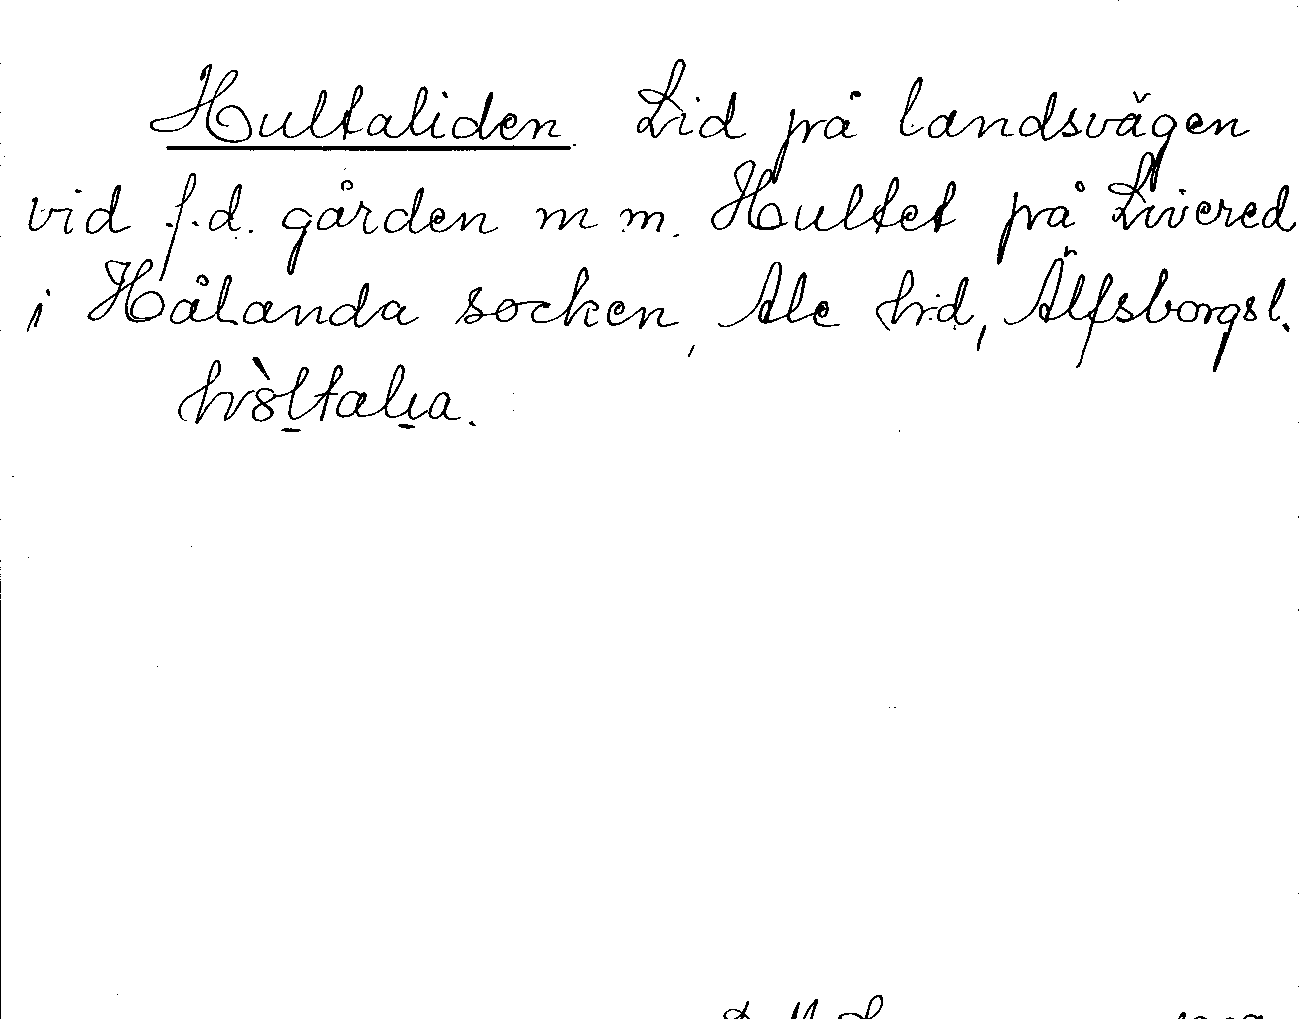 Hultaliden. Lid på landsvägen
vid f.d. gården m m. Hultet på Livered
i Hålanda socken, Ale hd, Älfsborgs l.